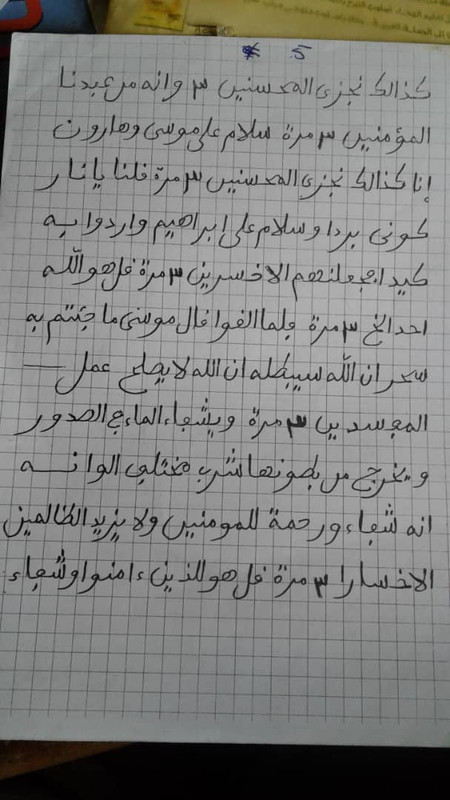 5
كذالك نجزى المحسنين ٣ وانه من عبدنا
المؤمنين ٣ مرة سلام على موسى وهارون
إنا كذالك نجزى المحسنين ٣ مرة فلنا يا نار
كونى بردا وسلام على إبراهيم واردوا به
كيدا فجعلنهم الاخسرين ٣ مرة فل هو الله
احد الخ ٣ مرة فلما الفوا فال موسى ما جئتم به
سحر ان الله سيبطله ان الله لا يصلح عمل
المفسدين ٣ مرة ويشفاء الماءفى الصدور
ويخرج من بطونها شرب مختلف الوانه
انه شفاء ورحمة للمومنين ولا يزيد الظالمين
الاخسارا ٣ مرة فل هو للذين ءامنوا وشفاء